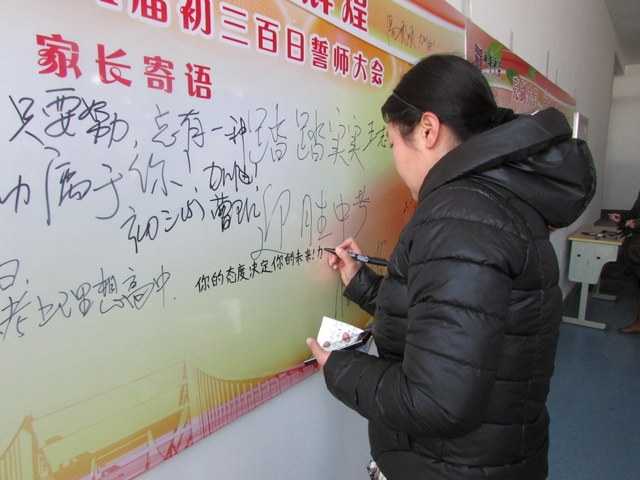 届初三百日誓师大会
家长寄语
只要努力,总有一种
功属于你、加油!
初三(4)曹
踏踏实实
迎胜中考
你的态度决定你的未来!力
考上理想高中.